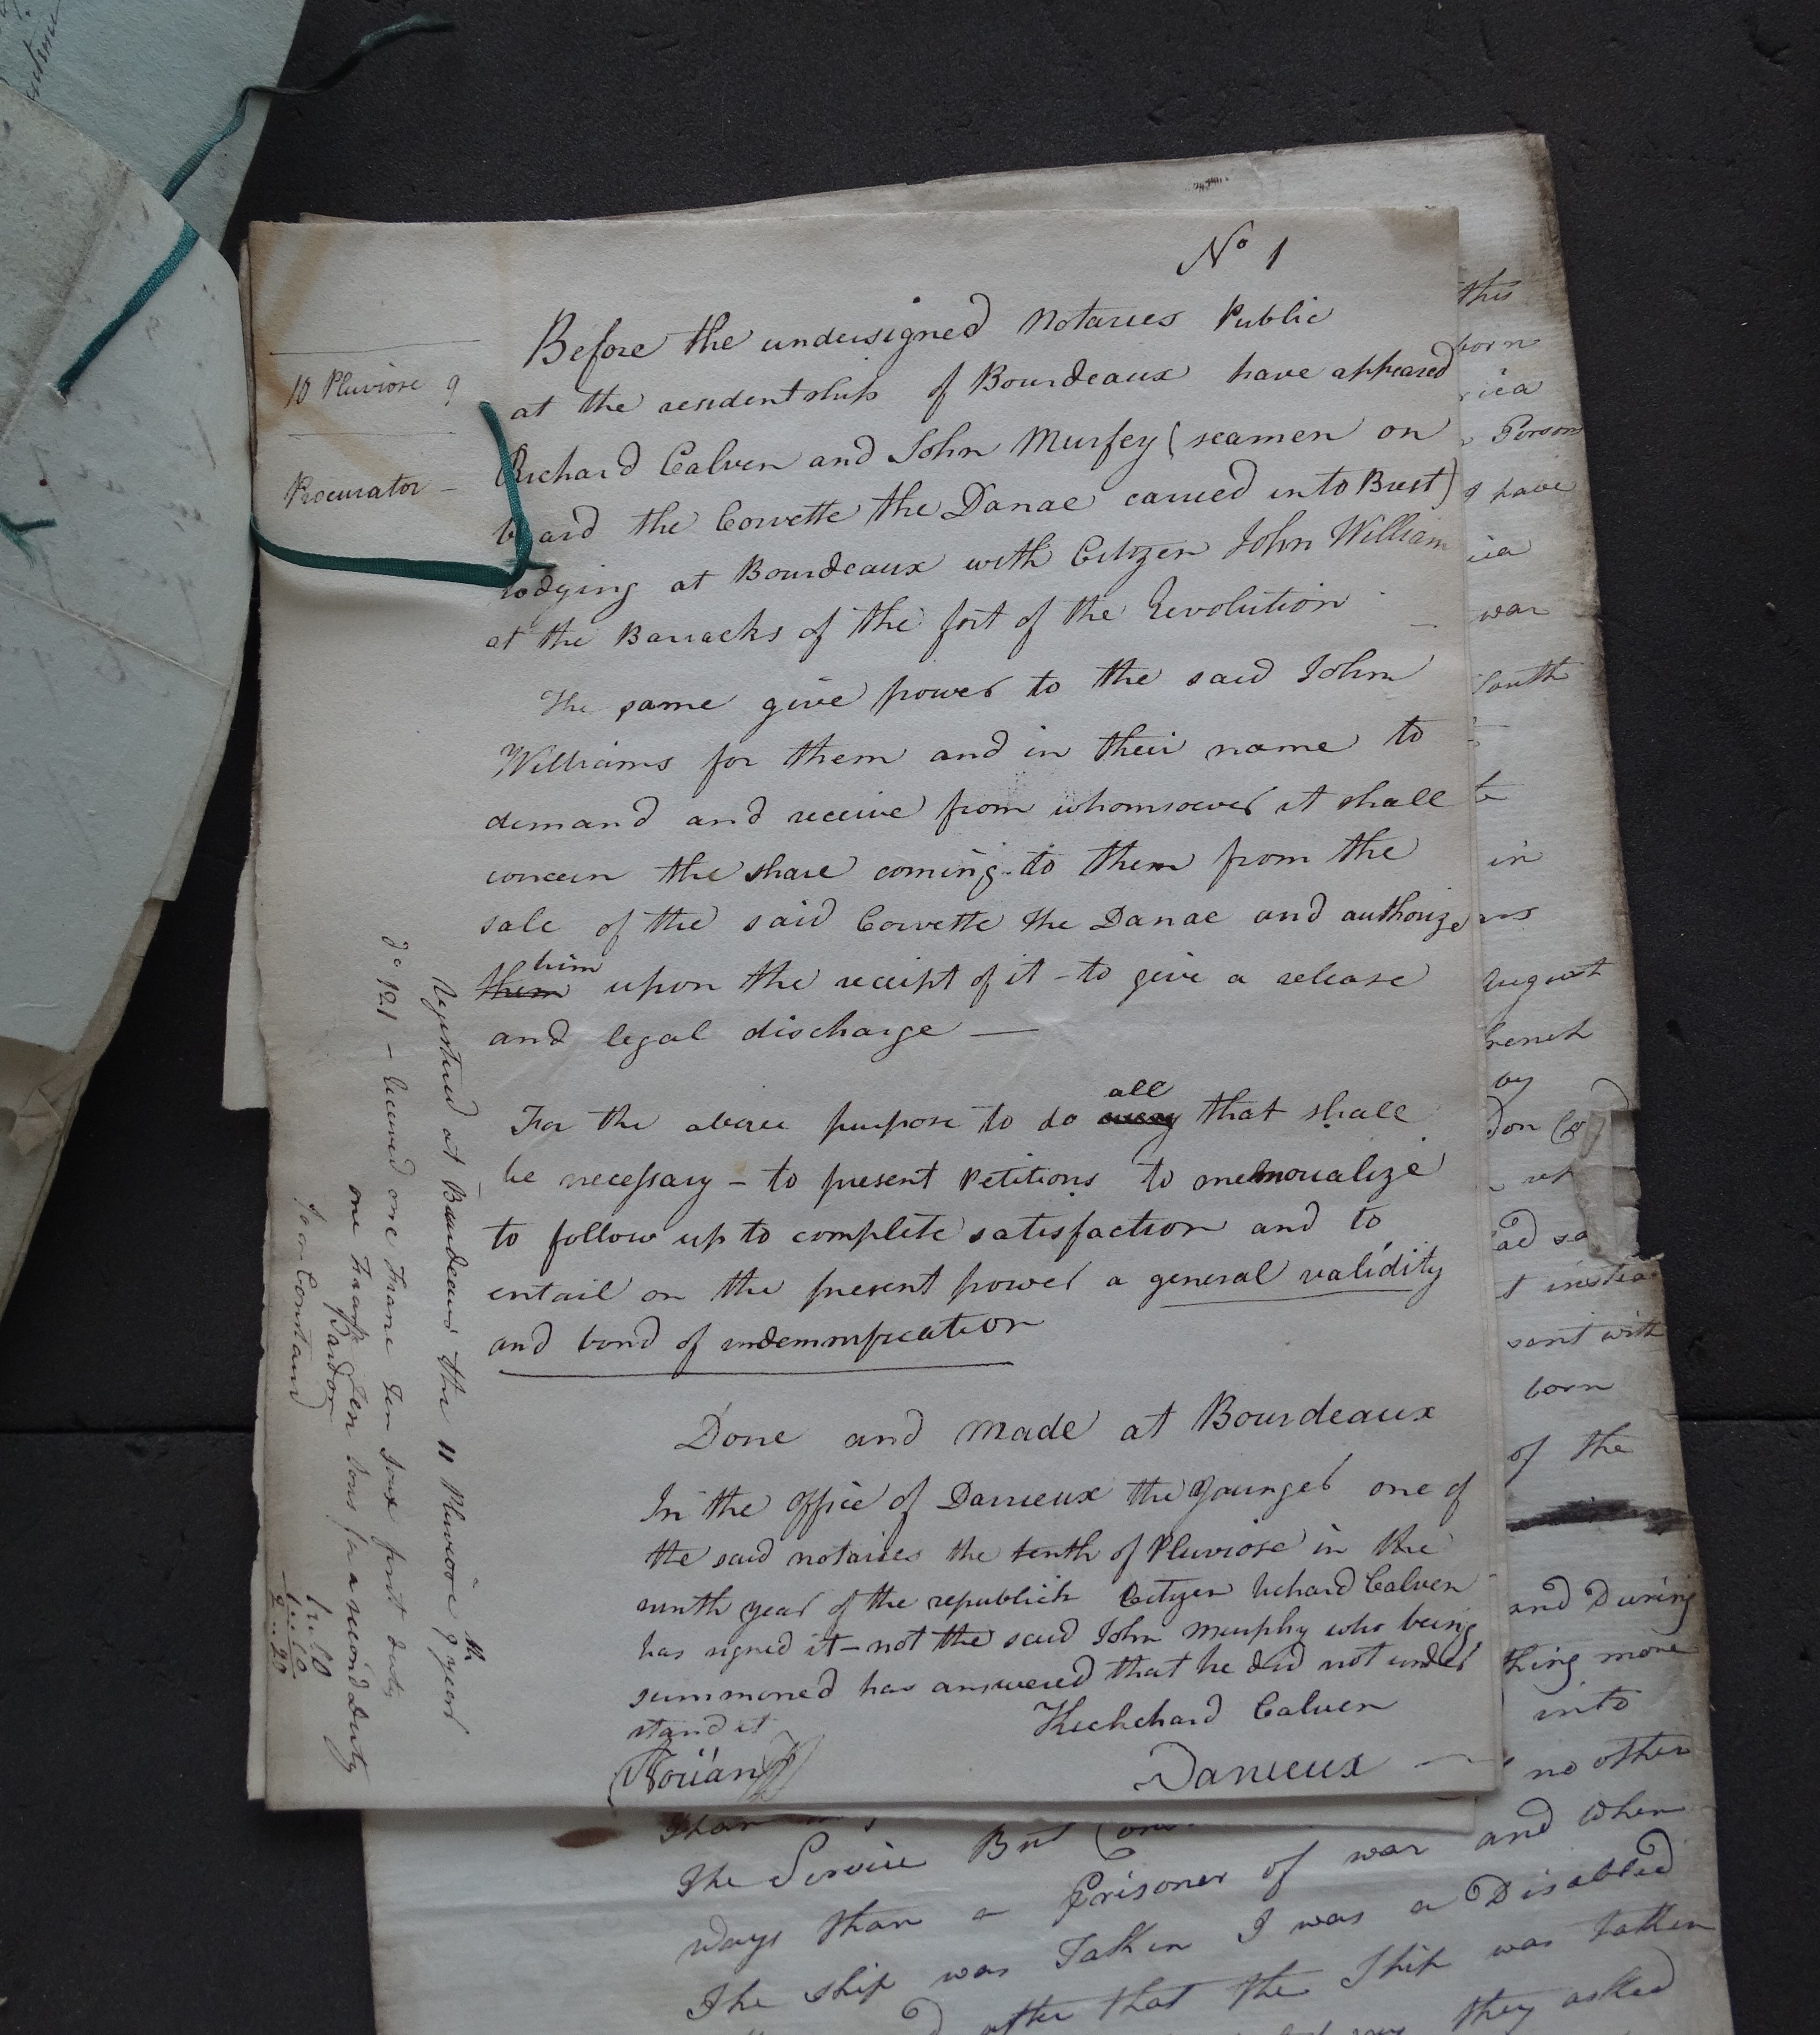 No 1
10 Pluviose 9
Procurator –
Before the undersigned Notaries Public
at the residentship of Bourdeaux have appeared
Richard Calven and John Murfey (seamen on
board the Corvette the Danae carried into Brest)
lodging at Bourdeaux with Citizen John William
at the Barracks of the fort of the Revolution –
The same give power to the said John
Williams for them and in their name to
demand and receive from whomsoever it shall
concern the share coming to them from the
sale of the said Corvette the Danae and authorize
him
them upon the receipt of it – to give a release
and legal discharge —
all
For the above purpose to do every that shall
be necessary – to present Petitions to memorialize
to follow up to complete satisfaction and to
entail on the present power a general validity
and bond of indemnification
Done and Made at Bourdeaux
In the office of Darrieux the Younger one of
the said notaries the tenth of Pluviose in the
ninth year of the republick Citizen Richard Calven
has signed it – not the said John Murphy who being
summoned has answered that he did not under
stand it
Richchard Calven
Darrieux —
Registered at Bourdeaux the 11 Pluviose 9th year
fo 121 – Received one Franc Ten sous first duty
one Franc Ten sous for a second Duty
this
born
rica
Person
I have
ica
war
South
in
August
french
by
born
of the
sent with
and During
thing more
into
no other
The Service But
Ways than a Prisoner of war and When
The Ship was Taken I was a Disabled
after that the Ship was taken
they asked